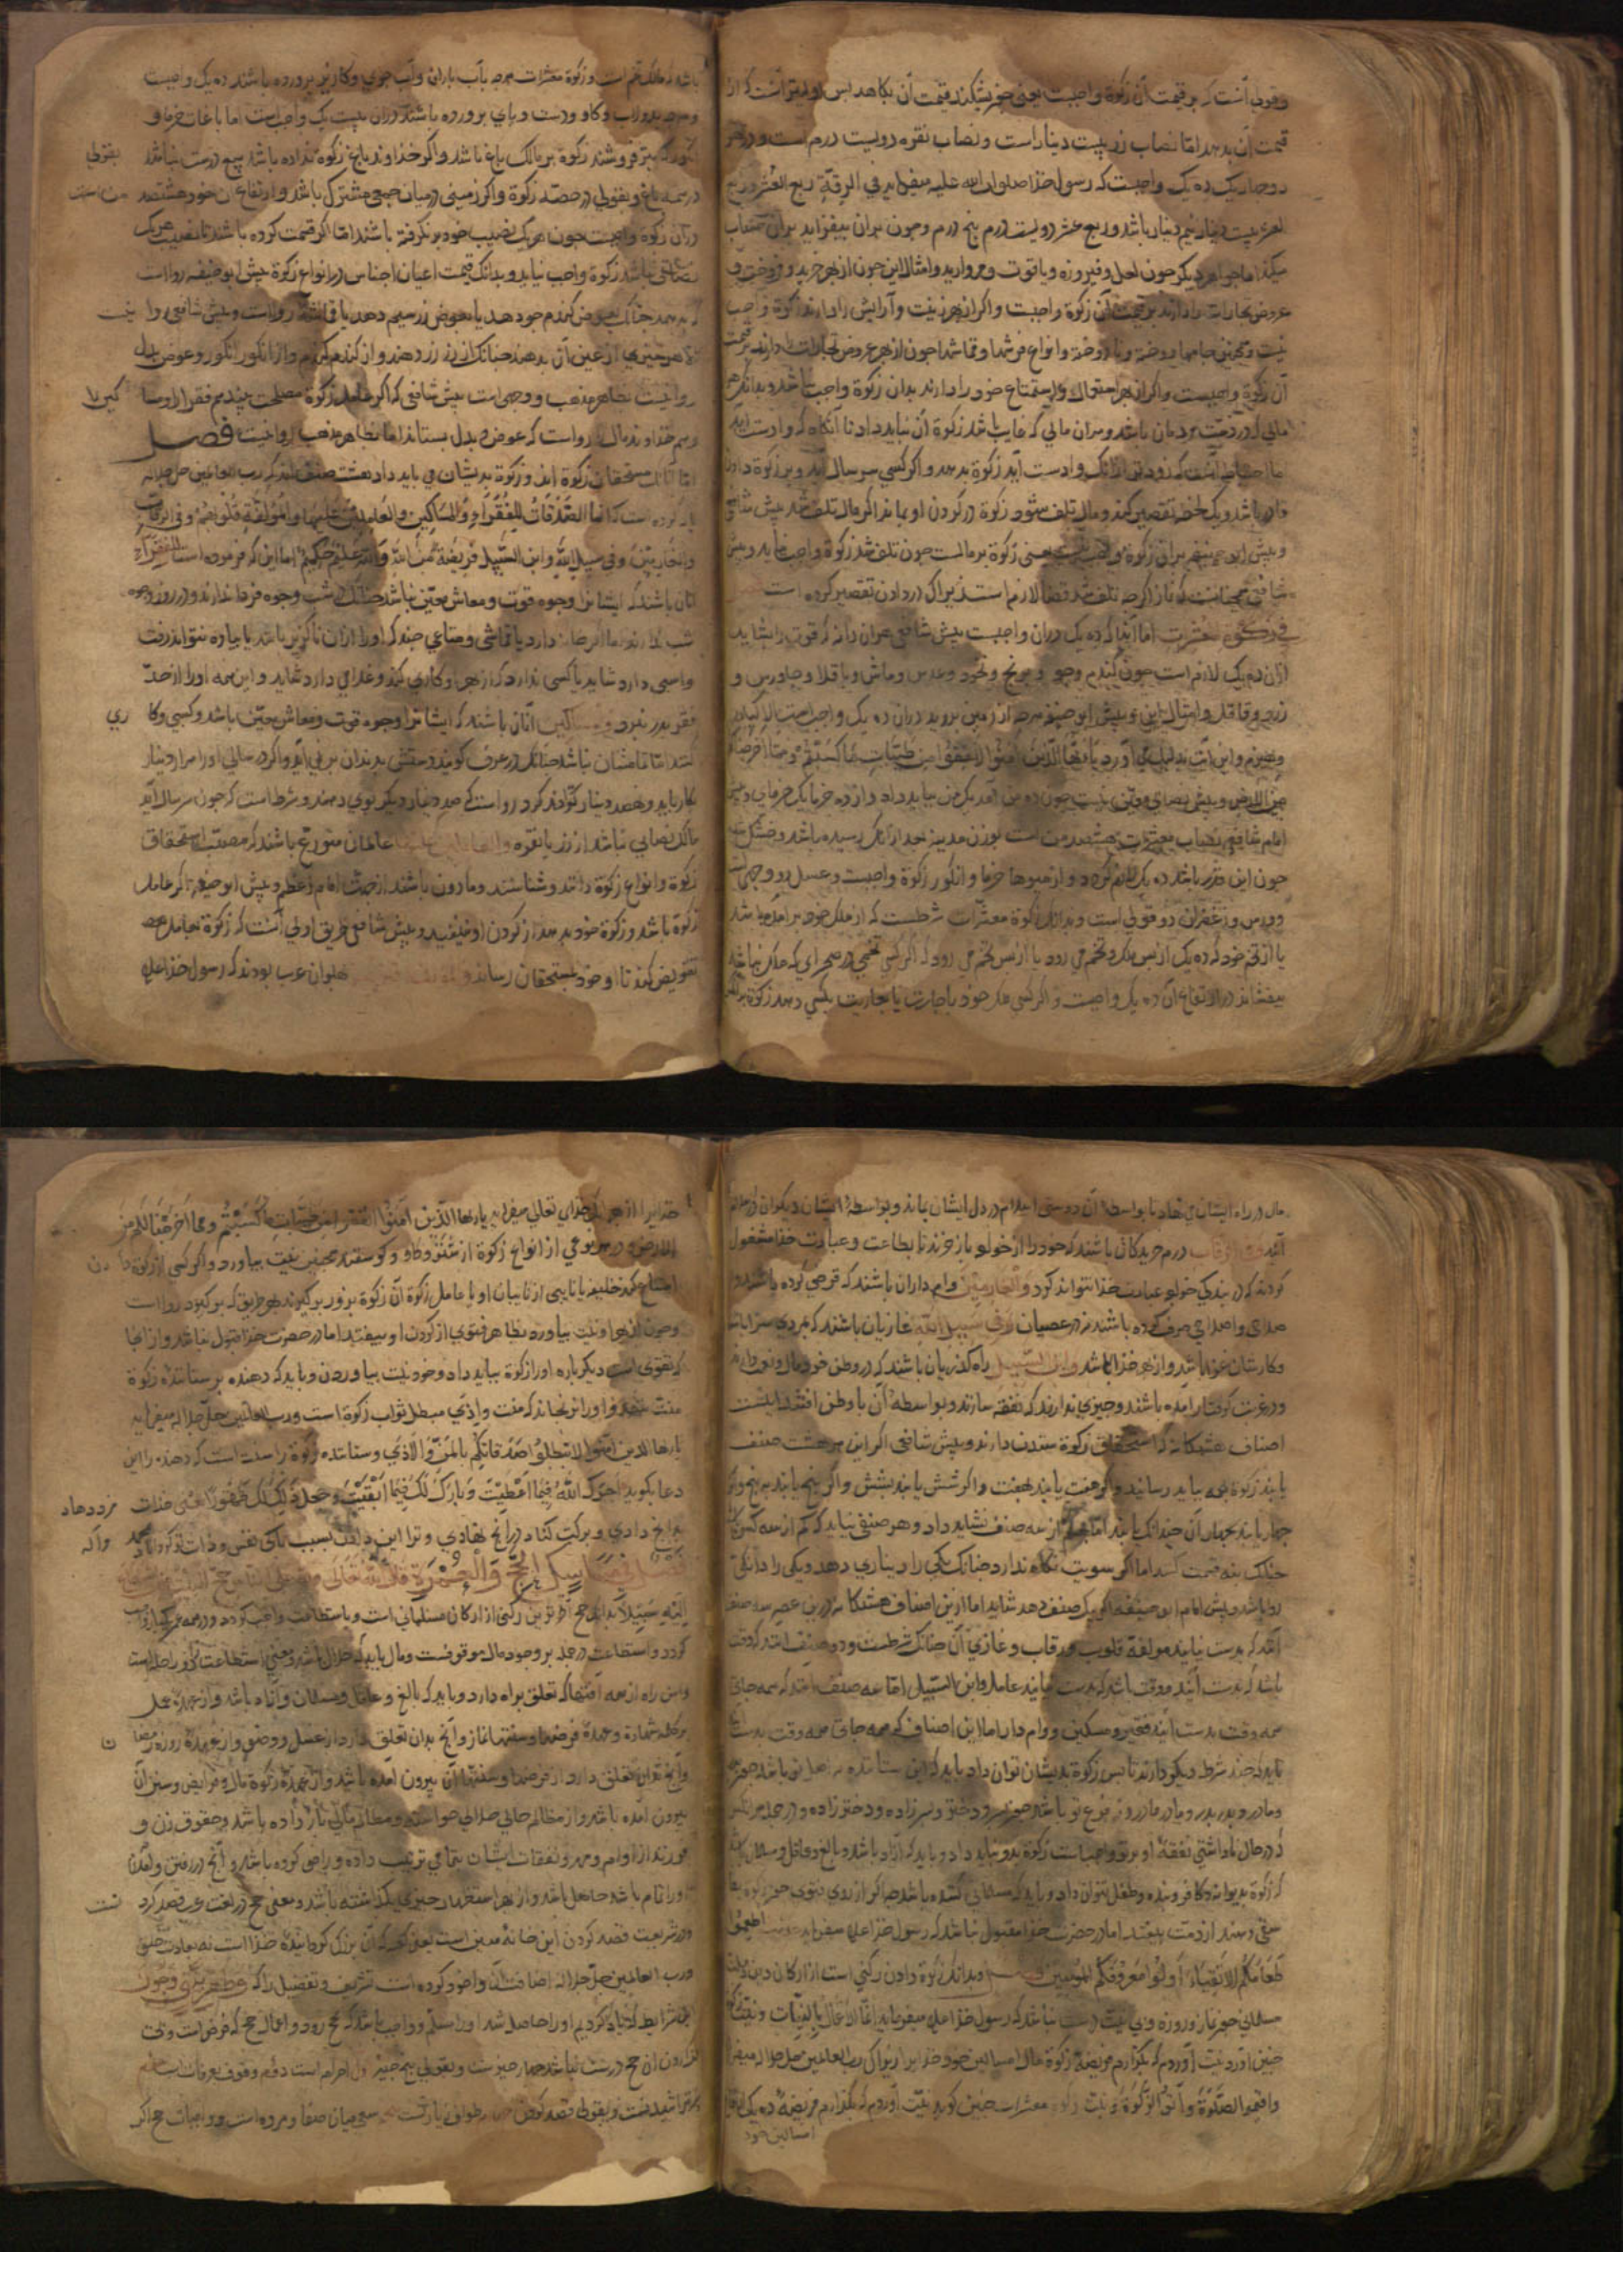 وقولی آنست که بر قیمت آن زکوة واجبست یعنی چون بشکنند قیمت آن بکاهد اولیتر آنست که از
قیمت آن بدهد اما نصاب زر بیست دینار است و نصاب نقره دویست درم است و در هر
دو چهار یک ده یک واجبست که رسول خدا صلوات الله علیه میفرماید في الرقة ربع العشر و ربع
العشر بیست دینار نیم دینار باشد و ربع عشر دویست درم پنج درم و چون بدان بیفزاید بدان حساب
میکند اما جواهر دیگر چون لعل و فیروزه و یاقوت و مروارید و امثال این چون از بهر خرید و فروخت و
عروض تجارات را دارند بر قیمت آن زکوة واجبست و اگر از بهر زینت و آرایش را دارند زکوة واجب
نیست و همچنین جامها دوخته و نا دوخته و انواع فرشها و قماشها چون از بهر عروض تجارات دارند بر قیمت
آن زکوة واجبست و اگر از بهر استعمال و استمتاع خود را دارند بدان زکوة واجب نباشد و بدانک هر
مالی که در ذمت مردمان باشد و بران مالی که غایب باشد زکوة آن نباید داد تا آنگاه که وا دست آید
اما احتیاط آنست که زودتر از آنک وا دست آید زکوة بدهد و اگر کسی سر سال آید و بر زکوة دادن
قادر باشد و یک لحظه تقصیر کند و مال تلف شود زکوة در گردن او بماند اگر مال تلف شد پیش شافعی
و پیش ابو حنیفه بران زکوة واجب نیست یعنی زکوة بر مالست چون تلف شد زکوة واجب نیاید و پیش
شافعی همچنانست که ناز اگر چه تلف شد قضا لازم است زیراک در دادن تقصیر کرده است
در زکوة معشرات اما آنها که ده یک دران واجبست پیش شافعی هران دانه که قوت را بشاید
ازان ده یک لازم است چون گندم و جو و برنج و نخود و عدس و ماش و باقلا و جاورس و
و امثال این و پیش ابو حنیفه هرچه از زمین بروید دران ده یک واجب است الا گیاه
و هیزم و این آیت بدلیل می آورد یا ایها الذین آمنوا انفقوا من طیبات ما کسبتم و مما اخرجنا
من الارض و پیش نصابی معین نیست چون ده من آمد یک من بباید داد و از ده خرما یک خرمای و پیش
امام شافعی نصاب معشرات هشتصد من است بوزن مدینه بعد از آنک رسیده باشد و خشک شده
چون این قدر باشد ده یک لازم گردد و از میوها خرما و انگور زکوة واجبست و عسل دو وجهی است
و ورس و زعفران دو قولی است و بدانک زکوة معشرات شرطست که از ملک خود بر آمده باشد
یا از تخم خود که ده یک از پس ملک و تخم می رود یا از پس تخم می رود که اگر کسی تخمی در صحرای که ملک نباشد
بیفشاند در ارتفاع آن ده یک واجبست و اگر کسی ملک خود باجارت یا بعاریت بکسی دهد زکوة بر آنکس
باشد که مالک تخم است و زکوة معشرات هرچه بآب باران و آب جوی و کاریز پرورده باشند ده یک واجبست
و هرچه بدولاب و گاو و دست و پای پرورده باشند دران بیست یک واجب است اما باغات خرما و
انگور که بفروشند زکوة بر مالک باغ باشد و اگر خداوند باغ زکوة نداده باشد بیع درست نباشد بقولی
در همه باغ و بقولی در حصه زکوة و اگر زمینی در میان جمعی مشترک باشد و ارتفاع آن خود هشتصد من است
دران زکوة واجبست چون هر یک نصیب خود بر نگرفته باشند اما اگر قسمت کرده باشند تا نصیب هر یک
نصابی نباشد زکوة واجب نیاید و بدانک قیمت اعیان اجناس در انواع زکوة پیش ابو حنیفه روا است
که بدهد چنانک بعوض گندم جو دهد یا بعوض زر سیم دهد یا قماشی روا است و پیش شافعی روا نیست
الا هر چیزی از عین آن بدهند چنانک از زر زر دهند و از گندم گندم و از انگور انگور و عوض بدل
روا نیست بظاهر مذهب و وجهی است پیش شافعی که اگر عامل زکوة مصلحت بیند هم فقرا را و
هم خداوند مال را روا است که عوض و بدل بستاند اما بظاهر مذهب روا نیست فصل
اما آنانک مستحقان زکوة اند و زکوة بدیشان می باید داد هشت صنف اند که رب العالمین جل جلاله
یاد کرده است که انما الصدقات للفقراء والمساکین والعاملین علیها والمؤلفة قلوبهم وفي الرقاب
والغارمین وفي سبیل الله وابن السبیل فریضة من الله والله علیم حکیم اما این که فرموده است للفقراء
آنان باشند که ایشانرا وجوه قوت و معاش معین نباشد چنانک در شب وجوه فردا ندارند و در روز وجوه
شب ندارند اما اگر خانه دارد یا قماشی و متاعی چند که او را ازان ناگزیر باشد یا پیاده نتواند رفت
و اسبی دارد شاید یا کسی ندارد که از بهر او کاری کند و غلامی دارد شاید و این همه او را از حد
فقر بدر نبرد و مساکین آنان باشند که ایشانرا وجوه قوت و معاش معین باشد و کسبی و کاری
کنند اما تمامشان نباشد چنانک در عرف گویند دستش بدندان بر نمی آید و اگر در سالی او را هزار دینار
بکار باید و نهصد دینار تواند کرد روا است که صد دینار دیگر بوی دهند و شرط است که چون سر سال آید
مالک نصابی نباشد از زر یا نقره والعاملین علیها عالمان متورع باشند که مصعب استحقاق
زکوة و انواع زکوة دانند و شناسند و ماذون باشند از جهت امام اعظم و پیش ابو حنیفه اگر عامل
زکوة باشد و زکوة خود بدهد از گردن او نیفتد و پیش شافعی طریق اولی آنست که زکوة بعامل
تفویض کند تا او خود بمستحقان رساند والمؤلفة قلوبهم پهلوانان عرب بودند که رسول خدا علیه
مال در راه ایشان می نهاد تا بواسطه آن دوستی اسلام در دل ایشان باند و بواسطه ایشان دیگران در اسلام
آیند وفي الرقاب درم خریدگان باشند که خود را از خواجو باز خرند تا بطاعت و عبادت خدا مشغول
گردند که در بندگی خواجو عبادت خدا نتواند کرد والغارمین وام داران باشند که قرضی کرده باشند و
صرف کرده باشند نه در عصیان وفي سبیل الله غازیان باشند که بمردی
و کارشان غزو باشد و از بهر خدا باشد وابن السبیل راه گذریان باشند که در وطن خود مال و نعمت دارند
و در غربت گرفتار آمده باشند و چیزی ندارند که نفقه سازند و بواسطه آن با وطن افتند اینست
اصناف هشتگانه که استحقاق زکوة ستدن دارند و پیش شافعی اگر این هر هشت صنف
یابند زکوة بهمه بباید رسانید و اگر هفت یابند بهفت و اگر شش یابند بشش و اگر پنج یابند به پنج و اگر
چهار یابند بچهار آن چندانک یابند اما کم از سه صنف نشاید داد و هر صنفی نباید که کم از سه کس باشد
چنانک بنه قسمت کند اما اگر سویت نگاه ندارد چنانک یکی را دیناری دهد و یکی را دانگی
روا باشد و پیش امام ابو حنیفه اگر بیک صنف دهد شاید اما ازین اصناف هشتگانه درین عصر سه صنف
آنند که بدست نیایند مولفة قلوب و رقاب و غازی آن چنانک شرطست و دو صنف آنند که وقت
باشد که بدست آیند و وقت باشد که بدست نیایند عامل و ابن السبیل اما سه صنف آنند که همه جای
همه وقت بدست آیند فقیر و مسکین و وام دار اما این اصناف که همه جای همه وقت بدست
باید که چند شرط دیگر دارند تا پس زکوة بدیشان توان داد باید که این ستاننده نه اصل تو باشد چون پدر
و مادر و پدر پدر و مادر مادر و نه فرع تو باشد چون پسر و دختر و پسر زاده و دختر زاده و در جمله هر آنکس
که در حال ناداشتی نفقه او بر تو واجبست زکوة بدو نباید داد و باید که آزاد باشد و بالغ و عاقل و مسلمان باشد
که زکوة بدیوانه و کافر و بنده و طفل نتوان داد
دهند از ذمت بیفتد اما در حضرت خدا مقبول نباشد که رسول خدا علیه میفرماید اطعموا
طعامکم الاتقیاء و اولوا معروفکم المؤمنین فصل و بدانک زکوة دادن رکنی است از ارکان دین و
مسلمانی چون نماز و روزه و بی نیت درست نباشد که رسول خدا علیه میفرماید انما الاعمال بالنیات و نیت زکوة
چنین آورد نیت آوردم که بگزارم فریضه زکوة مال امسالین خود خدایرا زیراکی رب العالمین جل جلاله میفرماید
واقیموا الصلوة وآتوا الزکوة و نیت زکوة معشرات چنین گوید نیت آوردم که بگزارم فریضه ده یکی
امسالین خود
خدایرا از بهر آنک خدای تعالی میفرماید یا ایها الذین آمنوا انفقوا من طیبات ما کسبتم ومما اخرجنا لکم من
الارض و در هر نوعی از انواع زکوة از شتر و گاو و گوسفند همچنین نیت بیاورد و اگر کسی از زکوة دادن
امتناع کند خلیفه یا نایبی از نایبان او یا عامل زکوة آن زکوة بزور برگیرند بهر طریق که برگیرد روا است
و چون از بهر او نیت بیاورد بظاهر فتوی از گردن او بیفتد اما در حضرت خدا قبول نباشد و از آنجا
که تقوی است دیگر باره او را زکوة بباید داد و خود نیت بیاوردن و باید که دهنده بر ستاننده زکوة
منت ننهد و او را نرنجاند که منت و اذی مبطل ثواب زکوة است و رب العالمین جل جلاله میفرماید
یا ایها الذین آمنوا لا تبطلوا صدقاتکم بالمن والاذی و ستاننده زکوة را سنت است که دهنده را این
دعا بگوید اجرک الله فیما اعطیت وبارک لک فیما ابقیت وجعله لک طهورا یعنی خدات مزد دهاد
بدانچ دادی و برکت کناد در آنچ بنهادی و ترا این دادن بسبب پاکی نفس و ذات تو کرداناد والله
فصل في مناسک الحج والعمرة قال الله تعالی ولله علی الناس حج البیت من استطاع
الیه سبیلا بدانک حج رکنی از ارکان مسلمانی است و باستطاعت واجب گردد و در همه عمر یکبار واجب
گردد و استطاعت در جمله بر وجود مال موقوفست و مال باید که حلال باشد و معنی استطاعت زاد و راحله است
و امن راه از همه آفتها که تعلق براه دارد و باید که بالغ و عاقل و مسلمان و آزاد باشد و از عهده عمل
بر کلمه شهادة و عهده فرضها و سنتها نماز و آنچ بدان تعلق دارد از غسل و وضو و از عهده روزه رمضان
و آنچ بدان تعلق دارد از فرضها و سنتها آن بیرون آمده باشد و از عهده زکوة مال و فرایض و سنن آن
بیرون آمده باشد و از مظالم حالی حلالی خواسته و مظالم مالی باز داده باشد و حقوق زن و
فرزند از اوام و مهر و نفقات ایشان بتمامی ترتیب داده و راضی کرده باشد و آنچ در رفتن و آمدن
او را تمام باشد حاصل باشد و از بهر استظهار چیزی بگذاشته باشد و معنی حج در لغت عرب قصد کردنست
و در شریعت قصد کردن این خانه معین است یعنی کعبه که آن بزرگ گردانیده خدا است نه بعادت خلق
و رب العالمین جل جلاله اضافت آن وا خود کرده است تشریف و تفضیل را که وطهر بیتي و چون
این شرایط که یاد کردیم او را حاصل شد او را مسلم و واجب باشد که بحج رود و اعمال حج که فرض است و بی
گزاردن آن حج درست نباشد چهار چیزست و بقولی پنج چیز اول احرام است دوم وقوف بعرفات است سیوم
سعی میان صفا و مروه است و واجبات حج اگر